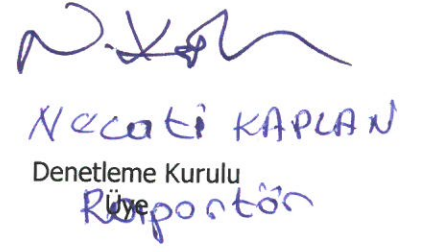 N. Kapl
Necati KAPLAN
Denetleme Kurulu
Üye
Raportör